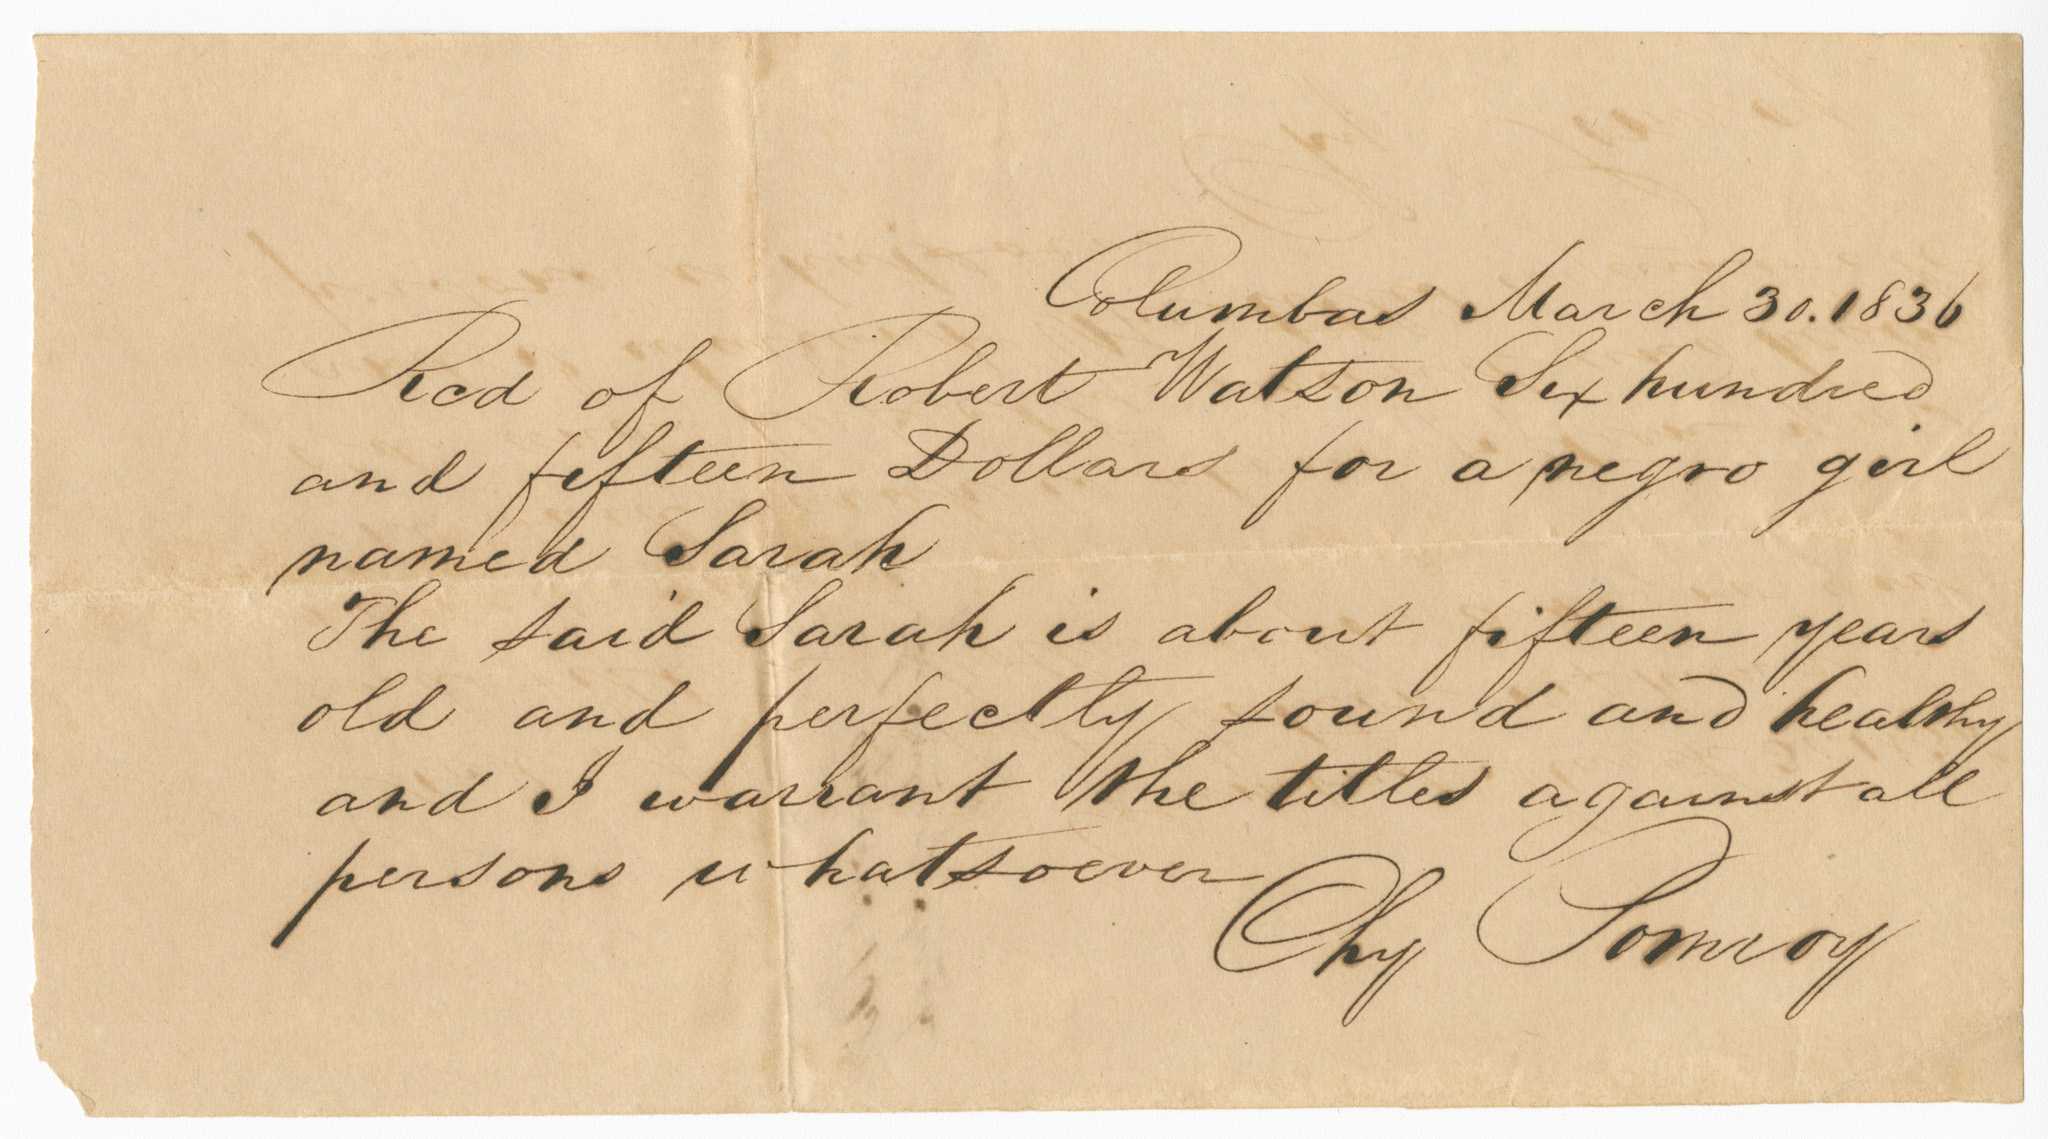 Columbus March 30. 1836
Recd of Robert Watson Six hundred
and fifteen Dollars for a negro girl
named Sarah
The said Sarah is about fifteen years
old and perfectly sound and healthy
and I warrant the titles against all
persons whatsoever
Chy Pomroy